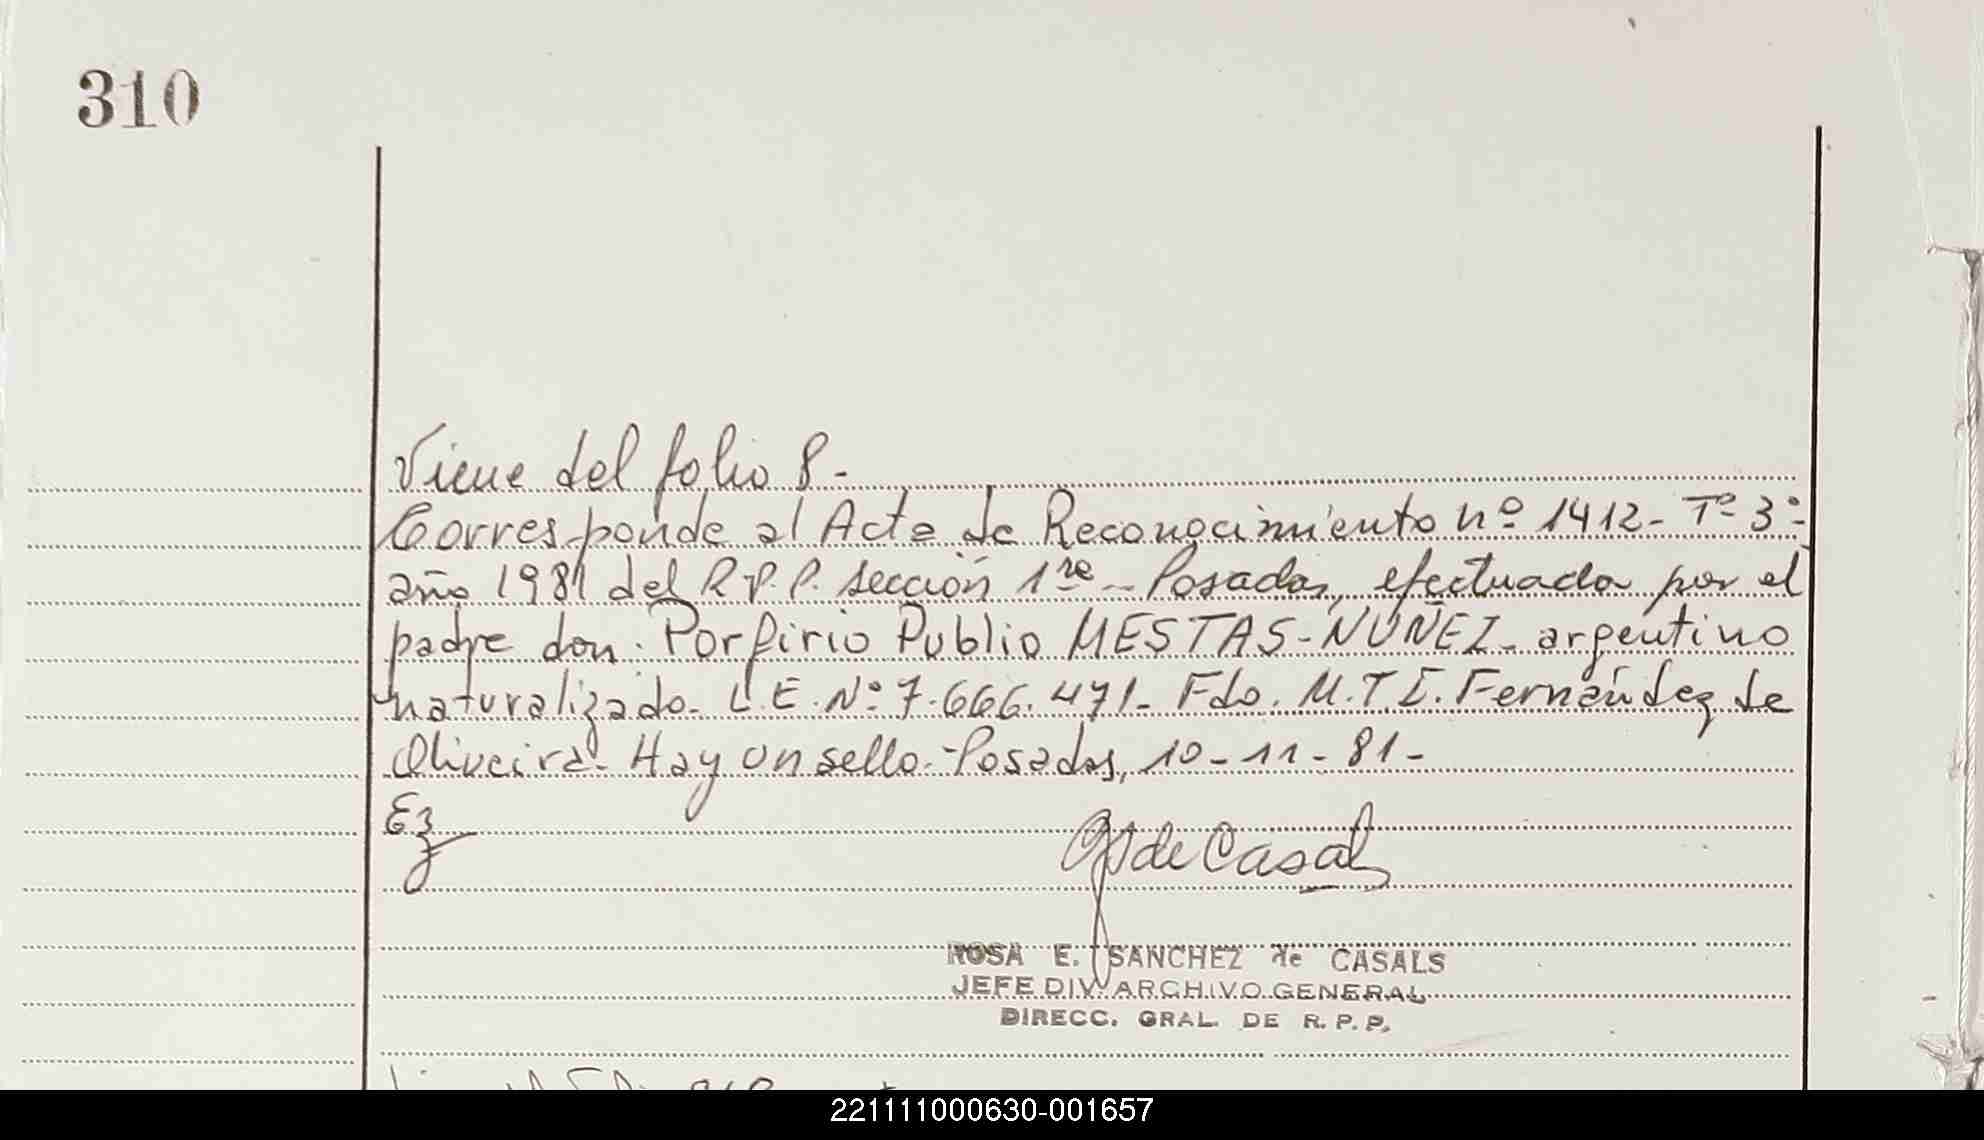 310
Viene del folio 8.-
Corresponde al Acta de Reconocimiento nº 1412- Tº 3º-
año 1981 del R.P.P. sección 1re - Posadas, efectuada por el
padre don: Porfirio Publio MESTAS-NUÑEZ- argentino
naturalizado- L.E. Nº 7.666.471- Fdo. M.T.I. Fernández de
Oliveira- Hay un sello.- Posadas, 10-11-81-
Ez
de Casals
ROSA E. SANCHEZ de CASALS
JEFE DIV. ARCHIVO GENERAL
DIRECC. GRAL. DE R.P.P.
221111000630-001657